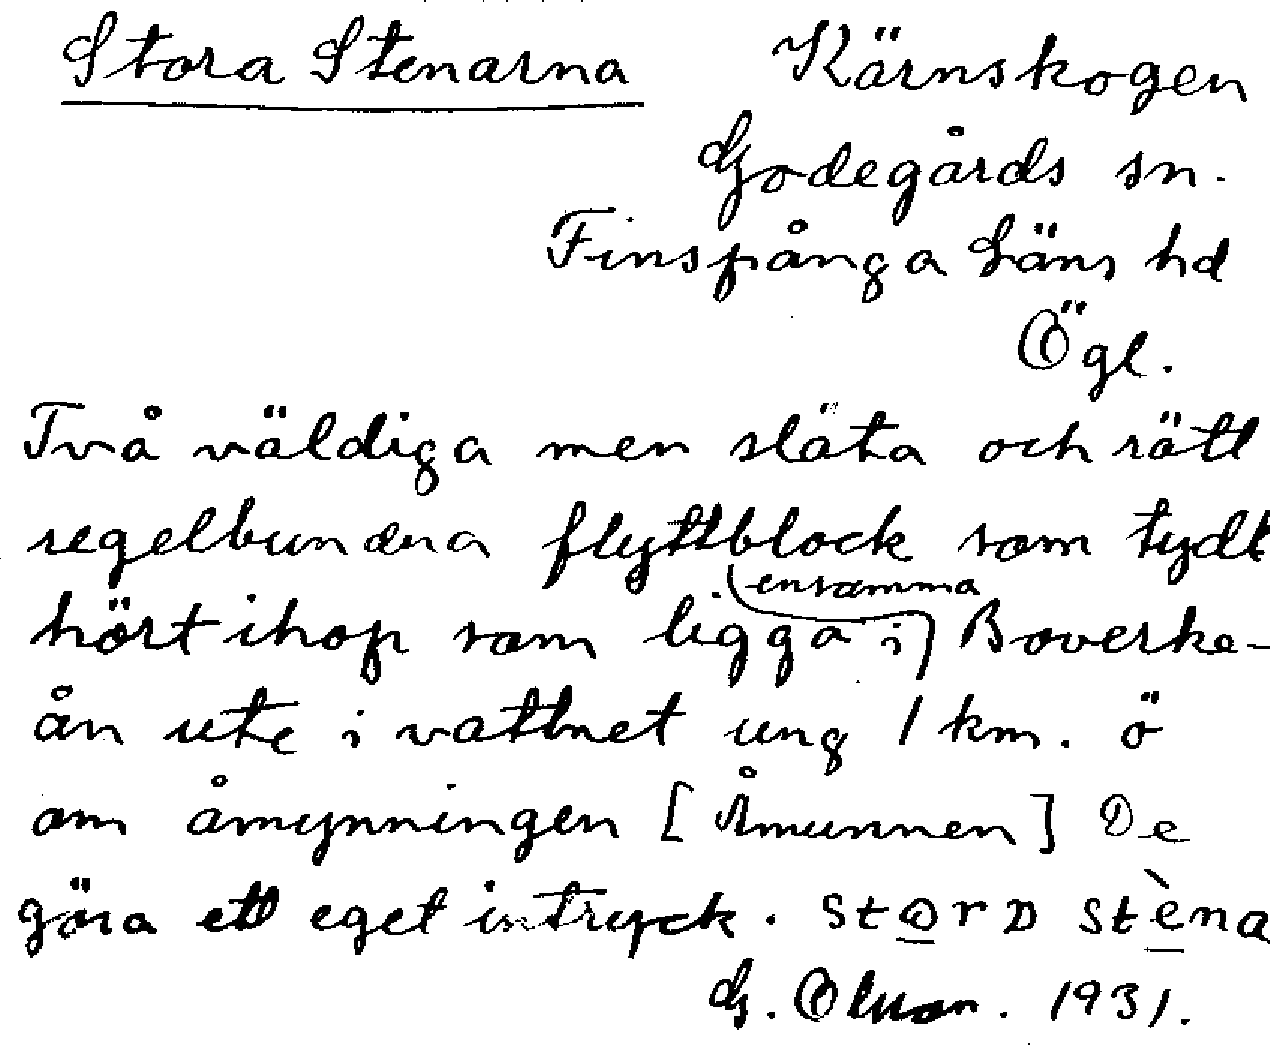 Stora Stenarna Kärnskogen
Godegårds sn.
Finspånga Läns hd
Ögl.
Två väldiga men släta och rätt
regelbundna flyttblock som tydl
hört ihop som ligga ensamma i Boverke-
ån ute i vattnet ung 1 km. ö
om åmynningen [Åmunnen] De
göra ett eget intryck. stora stèna
G. Olsson. 1931.